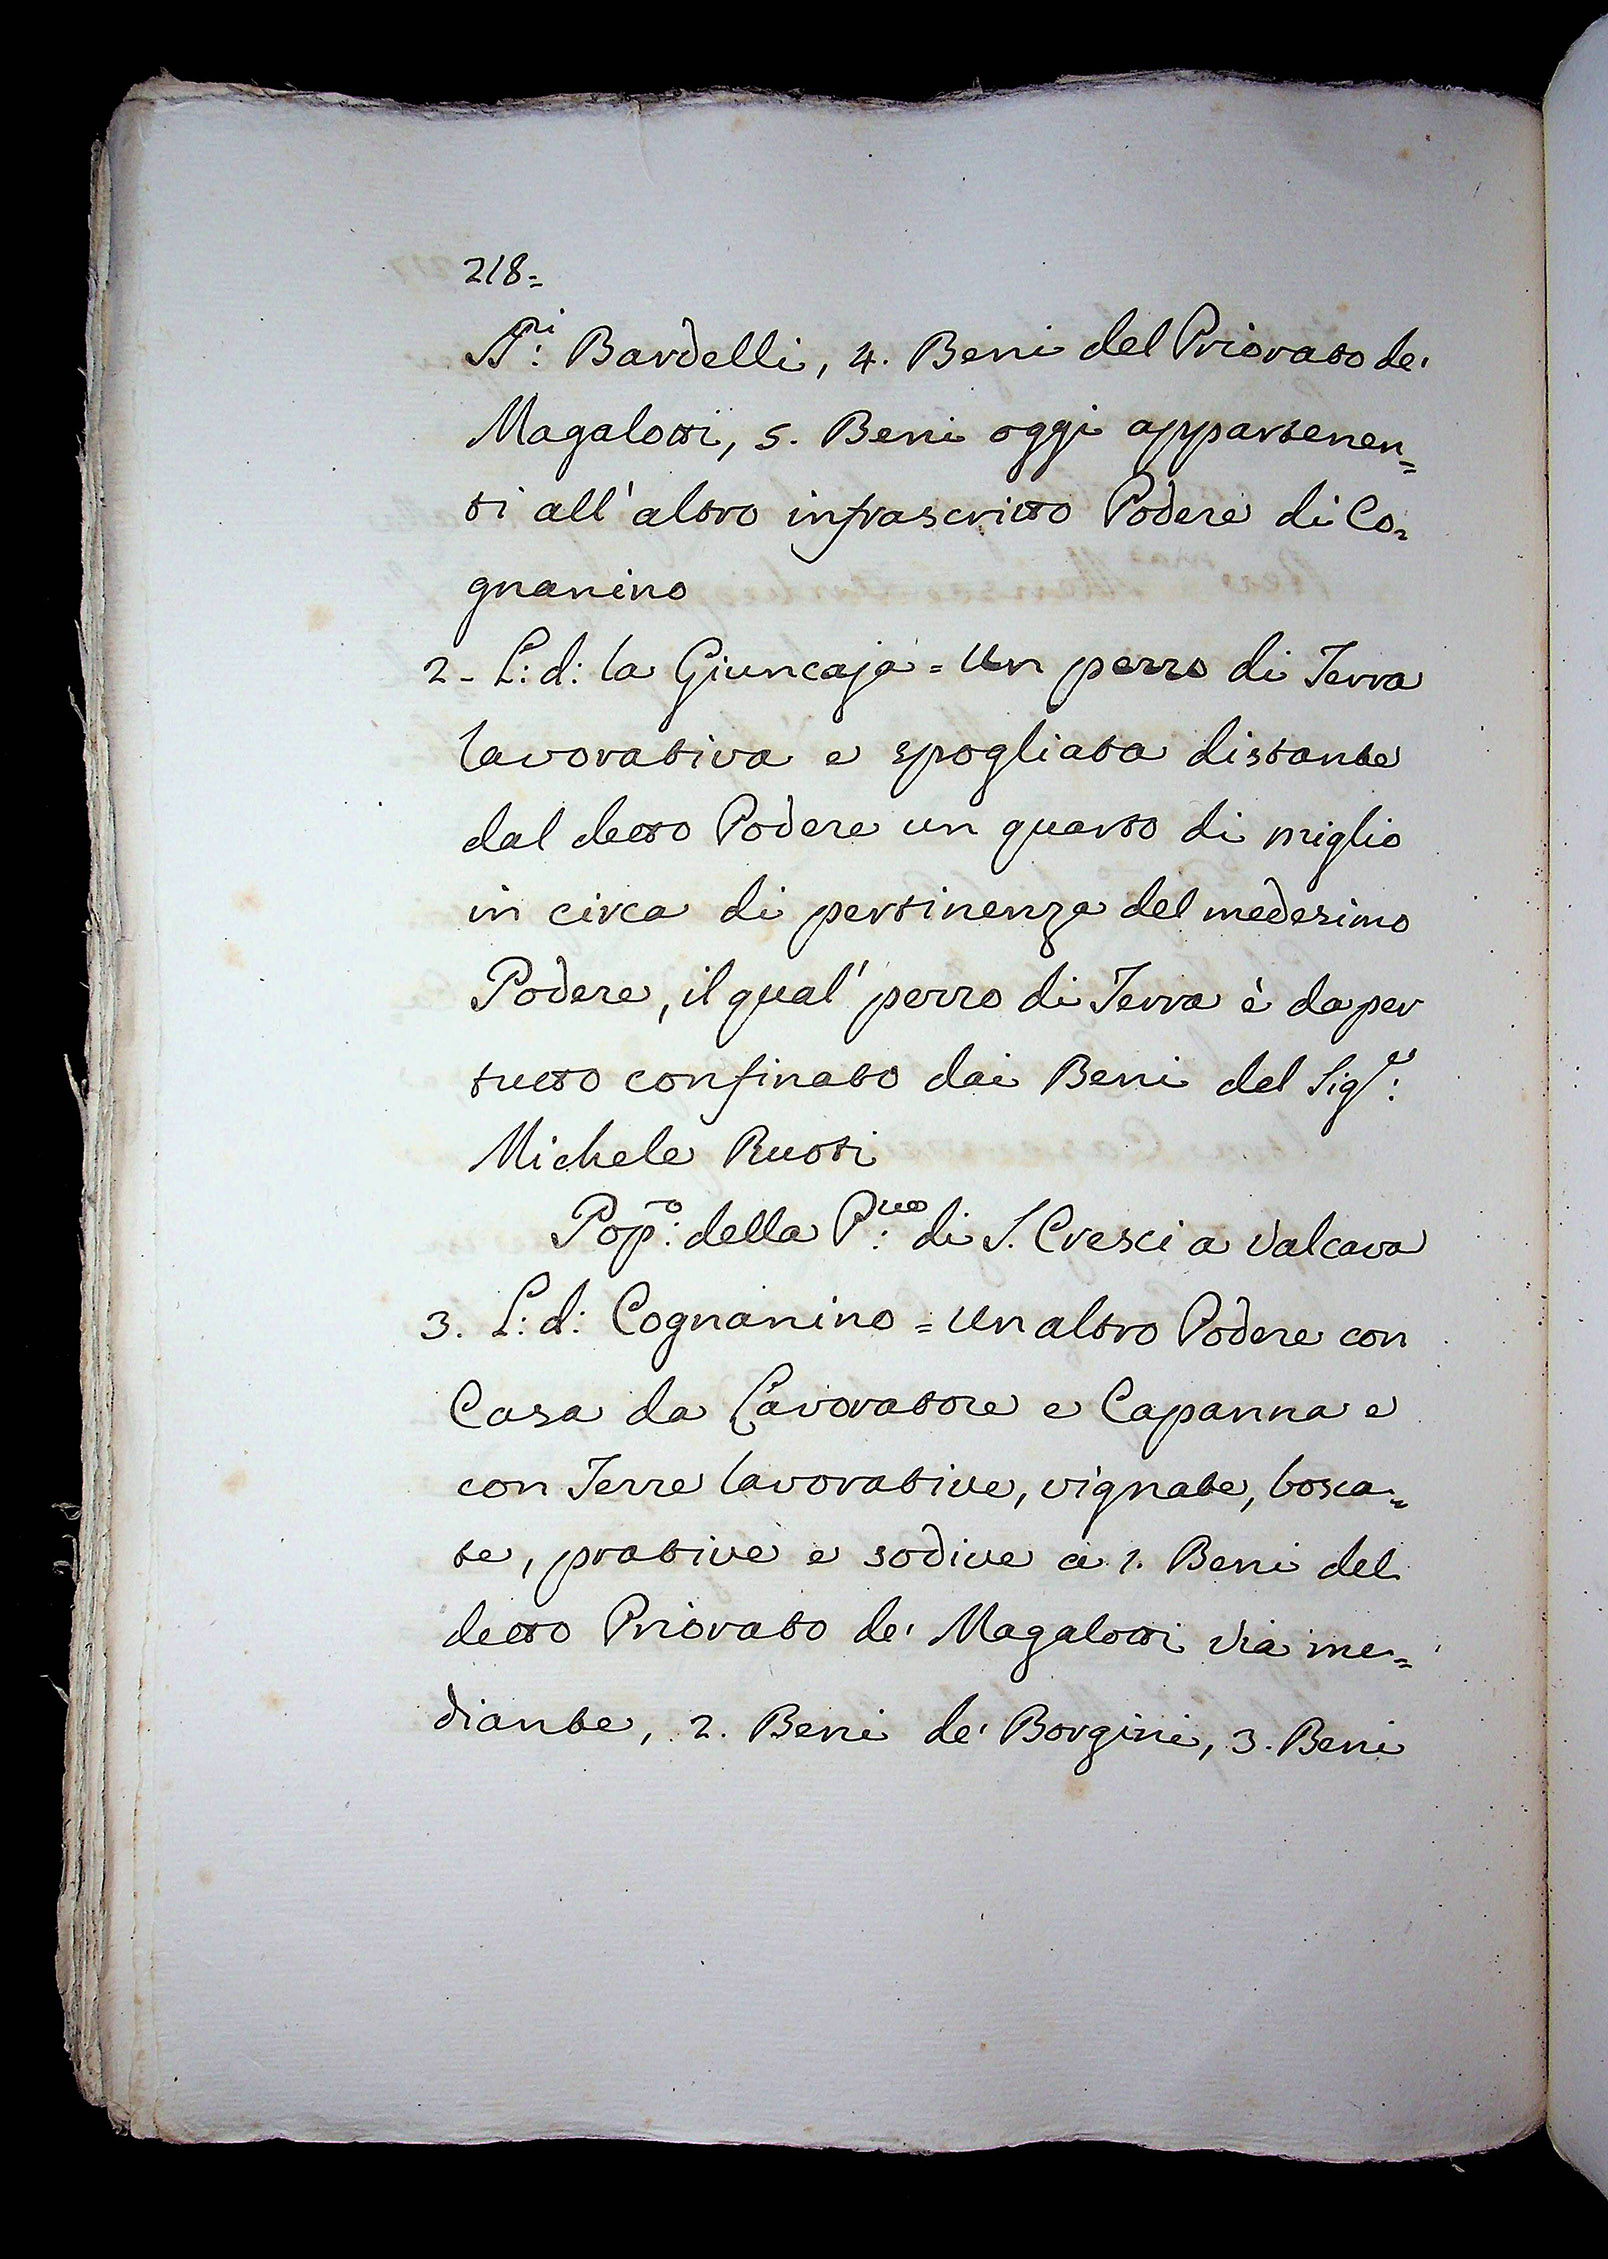 218=
SS.ri: Bardelli, 4. Beni del Priorato de'
Magalotti, 5. Beni oggi appartenen=
ti all'altro infrascritto Podere di Co=
gnanino
2- L: d: la Giuncaja = Un pezzo di Terra
lavorativa e spogliata distante
dal detto Podere un quarto di miglio
in circa di pertinenza del medesimo
Podere, il qual' pezzo di Terra è da per
tutto confinato dai Beni del Sigr:
Michele Ruoti
Popo: della P:ve di S. Cresci a Valcava
3. L: d: Cognanino = Un altro Podere con
Casa da Lavoratore e Capanna e
con Terre lavorative, vignate, bosca=
te, prative e sodive a 1. Beni del
detto Priorato de' Magalotti via me=
diante, 2. Beni de' Borgini, 3. Beni